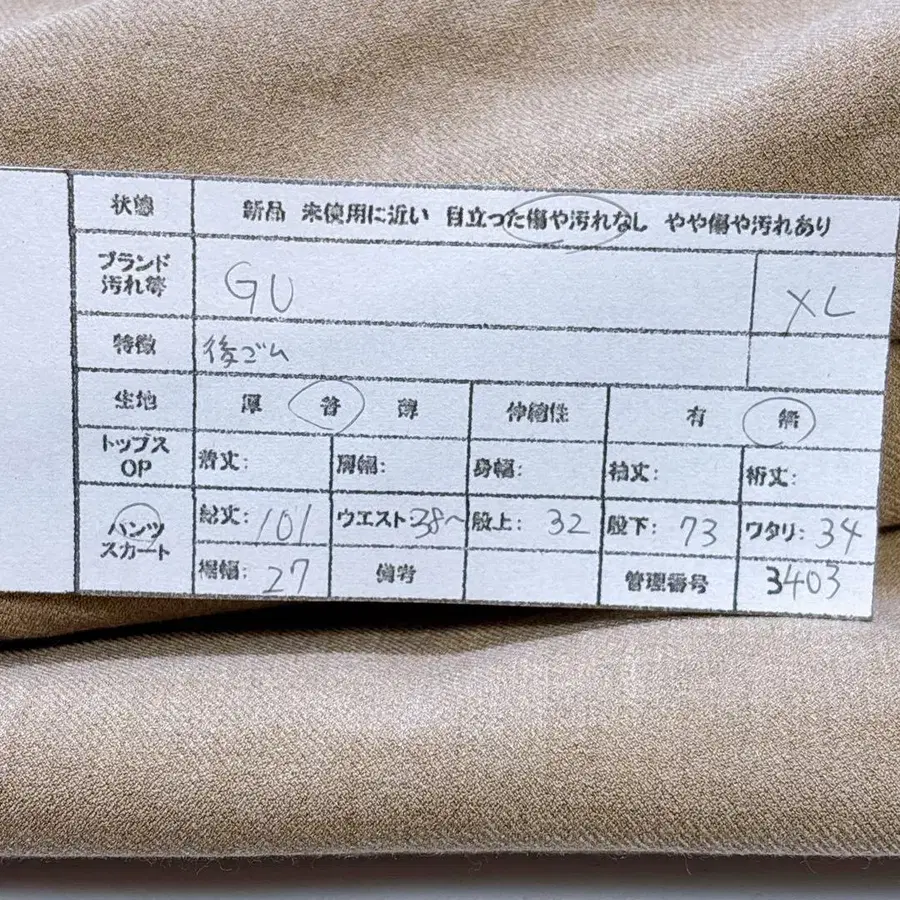 状態 新品 未使用に近い 目立った傷や汚れなし やや傷や汚れあり
ブランド
汚れ等 GU XL
特徴 後ゴム
生地 厚 普 薄 伸縮性 有 無
トップス
OP 着丈: 肩幅: 身幅: 袖丈: 裄丈:
パンツ
スカート 総丈: 101 ウエスト 38~ 股上: 32 股下: 73 ワタリ: 34
裾幅: 27 備考 管理番号 3403